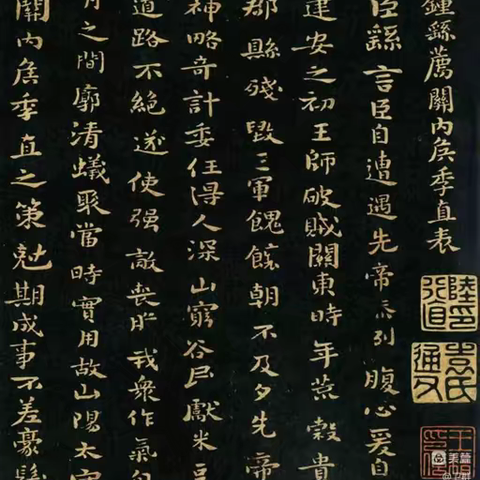 鍾繇薦關內矦季直表
臣繇言臣自遭遇先帝忝列腹心爰自
建安之初王師破賊關東時年荒穀貴
郡縣殘毀三軍餽饟朝不及夕先帝
神略奇計委任得人深山窮谷民獻米豆
道路不絕遂使强敵喪膽我衆作氣旬
月之間廓清蟻聚當時實用故山陽太守
關內矦季直之策剋期成事不差豪髮
陸印行直
美篇